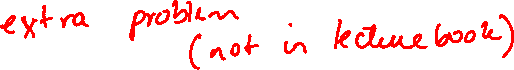 extra problem
(not in lecture book)